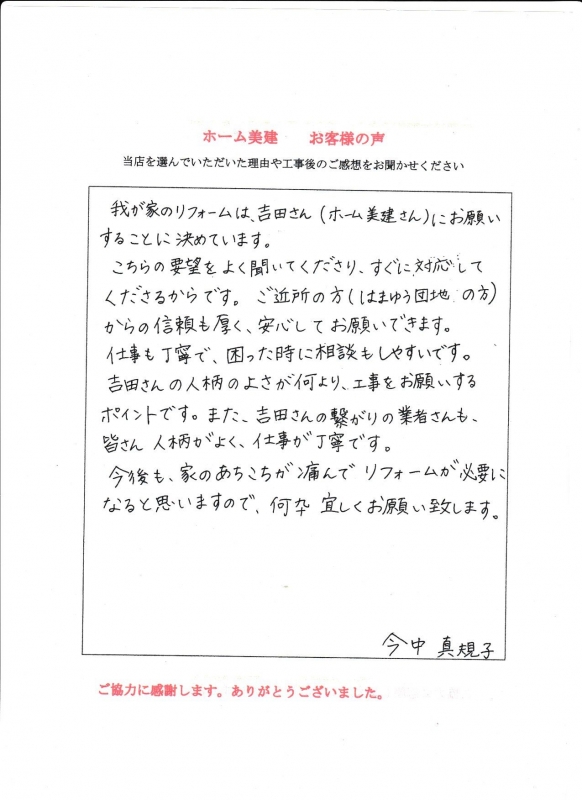 ホーム美建　　お客様の声
当店を選んでいただいた理由や工事後のご感想をお聞かせください
我が家のリフォームは、吉田さん(ホーム美建さん)にお願い
することに決めています。
こちらの要望をよく聞いてくださり、すぐに対応して
くださるからです。ご近所の方(はまゆう団地の方)
からの信頼も厚く、安心してお願いできます。
仕事も丁寧で、困った時に相談もしやすいです。
吉田さんの人柄のよさが何より、工事をお願いする
ポイントです。また、吉田さんの繋がりの業者さんも、
皆さん人柄がよく、仕事が丁寧です。
今後も、家のあちこちが痛んでリフォームが必要に
なると思いますので、何卒宜しくお願い致します。
今中 真規子
ご協力に感謝します。ありがとうございました。